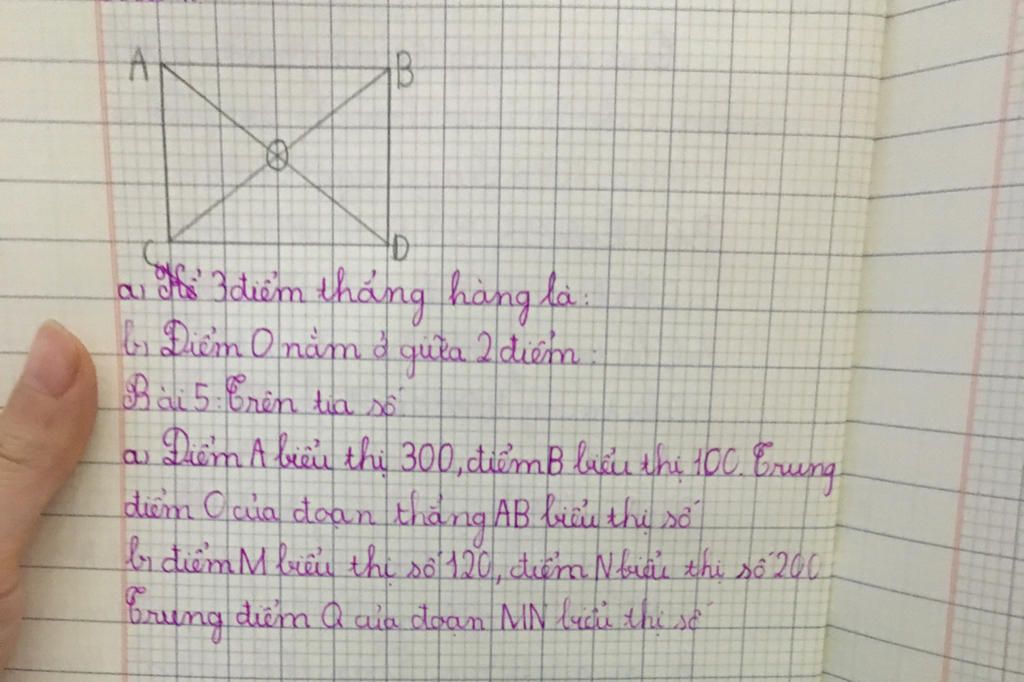 A B
C D
a, 3 điểm thẳng hàng là:
b, Điểm O nằm ở giữa 2 điểm:
Bài 5: Trên tia số
a, Điểm A biểu thị 300, điểm B biểu thị 100. Trung
điểm O của đoạn thẳng AB biểu thị số
b, điểm M biểu thị số 120, điểm N biểu thị số 200
Trung điểm Q của đoạn MN biểu thị số